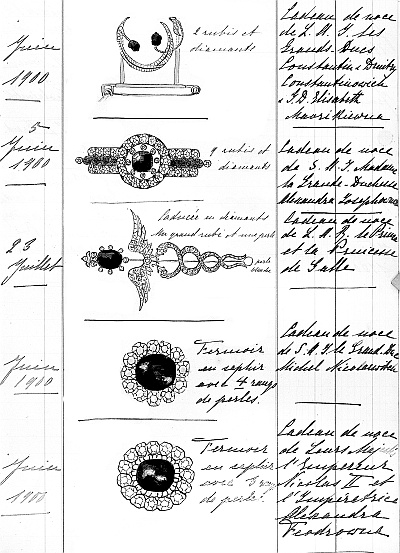 Juin
1900
2 rubis et
diamants
Cadeau de noce
de L. A. I. les
Grands-Ducs
Constantin & Dmitry
Constantinowich
& I. D. Elisabeth
Mavrikiewna
5
Juin
1900
9 rubis et
diamants
Cadeau de noce
de S. A. I. Madame
la Grande-Duchesse
Alexandra Josephowna
23
Juillet
caducée en diamants
un grand rubis et une perle
perle
blanche
Cadeau de noce
de L. A. R. le Prince
et la Princesse
de Galle
Juin
1900
Fermoir
en saphir
avec 4 rangs
de perles.
Cadeau de noce
de S. A. I. le Grand-Duc
Michel Nicolaewitch
Juin
1900
Fermoir
en saphir
avec
de perles.
Cadeau de noce
de Leurs Majestés
l'Empereur
Nicolas II et
l'Impératrice
Alexandra
Feodrowna